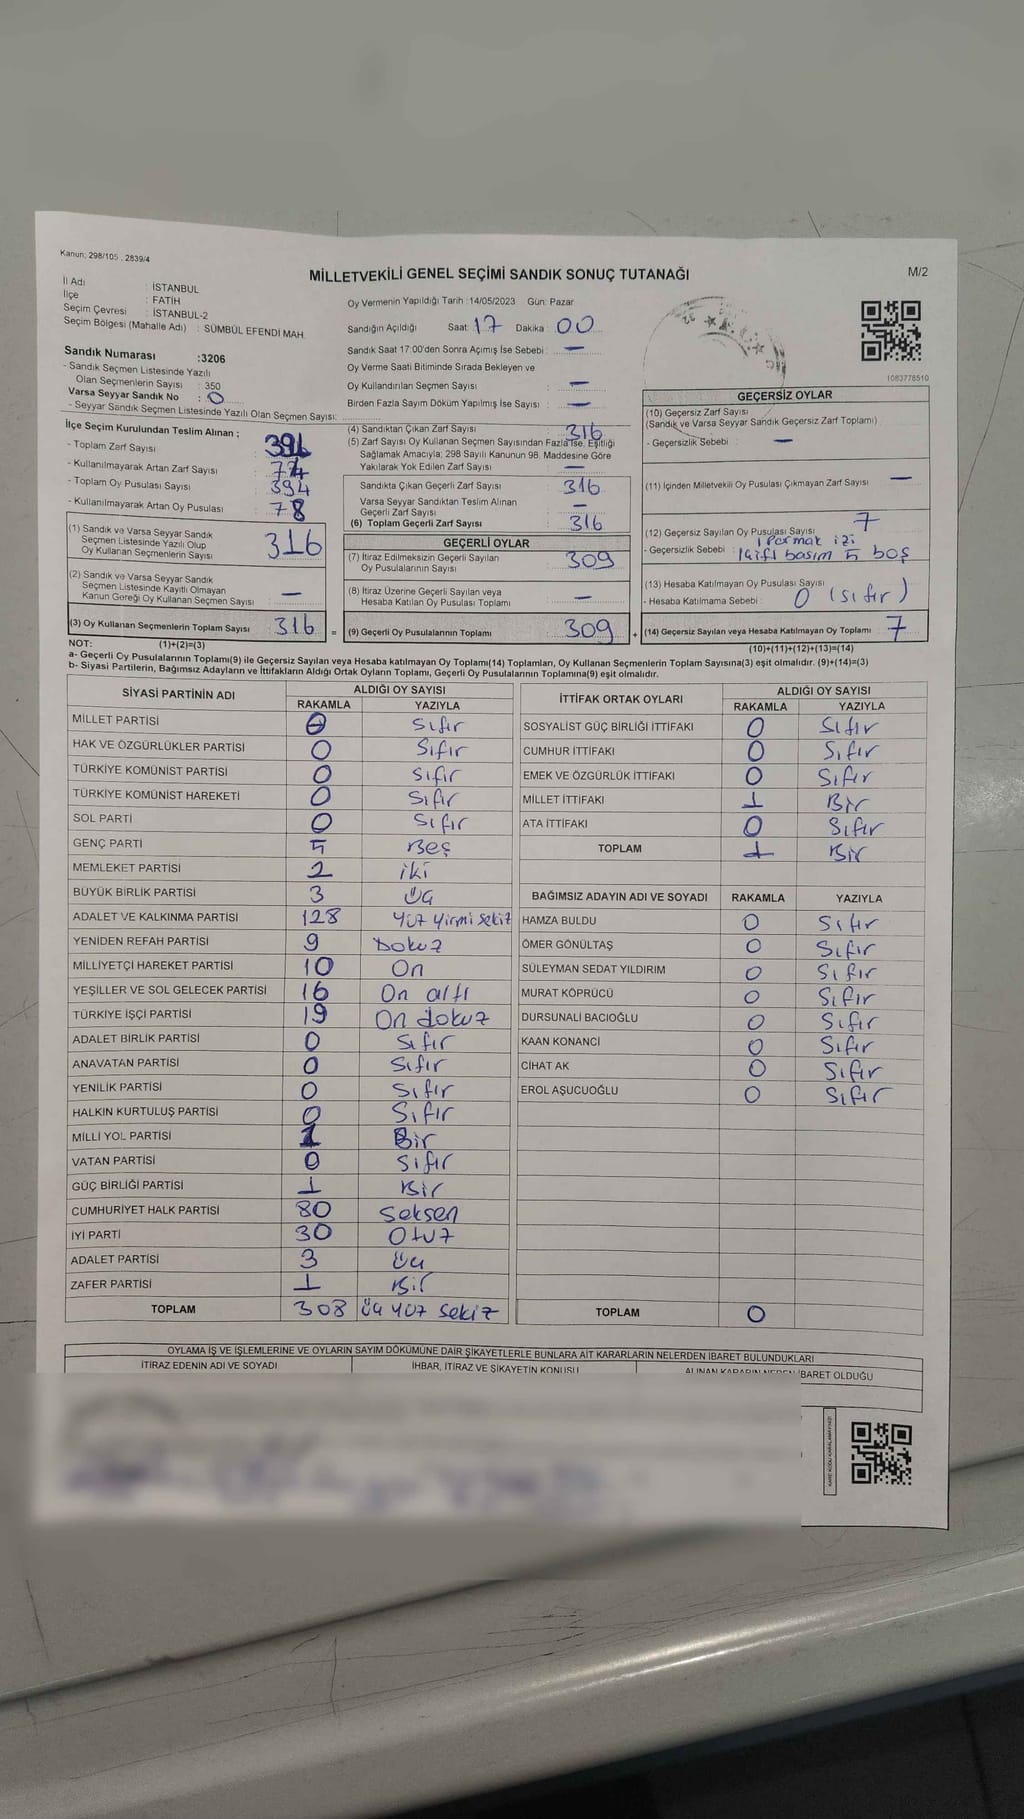 Kanun: 298/105 , 2839/4
MİLLETVEKİLİ GENEL SEÇİMİ SANDIK SONUÇ TUTANAĞI
M/2
İl Adı : İSTANBUL
İlçe : FATİH
Seçim Çevresi : İSTANBUL-2
Seçim Bölgesi (Mahalle Adı) : SÜMBÜL EFENDİ MAH.
Sandık Numarası :3206
- Sandık Seçmen Listesinde Yazılı
Olan Seçmenlerin Sayısı : 350
Varsa Seyyar Sandık No : 0
- Seyyar Sandık Seçmen Listesinde Yazılı Olan Seçmen Sayısı:
Oy Vermenin Yapıldığı Tarih :14/05/2023 Gün: Pazar
Sandığın Açıldığı Saat: 17 Dakika : 00
Sandık Saat 17:00'den Sonra Açılmış İse Sebebi : —
Oy Verme Saati Bitiminde Sırada Bekleyen ve
Oy Kullandırılan Seçmen Sayısı : —
Birden Fazla Sayım Döküm Yapılmış İse Sayısı : —
1083778510
İlçe Seçim Kurulundan Teslim Alınan ;
- Toplam Zarf Sayısı
- Kullanılmayarak Artan Zarf Sayısı
- Toplam Oy Pusulası Sayısı 394
- Kullanılmayarak Artan Oy Pusulası 78
(1) Sandık ve Varsa Seyyar Sandık
Seçmen Listesinde Yazılı Olup
Oy Kullanan Seçmenlerin Sayısı 316
(2) Sandık ve Varsa Seyyar Sandık
Seçmen Listesinde Kayıtlı Olmayan
Kanun Gereği Oy Kullanan Seçmen Sayısı —
(3) Oy Kullanan Seçmenlerin Toplam Sayısı 316 =
(4) Sandıktan Çıkan Zarf Sayısı 316
(5) Zarf Sayısı Oy Kullanan Seçmen Sayısından Fazla İse, Eşitliği
Sağlamak Amacıyla; 298 Sayılı Kanunun 98. Maddesine Göre
Yakılarak Yok Edilen Zarf Sayısı —
Sandıkta Çıkan Geçerli Zarf Sayısı 316
Varsa Seyyar Sandıktan Teslim Alınan
Geçerli Zarf Sayısı —
(6) Toplam Geçerli Zarf Sayısı 316
GEÇERLİ OYLAR
(7) İtiraz Edilmeksizin Geçerli Sayılan
Oy Pusulalarının Sayısı 309
(8) İtiraz Üzerine Geçerli Sayılan veya
Hesaba Katılan Oy Pusulası Toplamı —
(9) Geçerli Oy Pusulalarının Toplamı 309 +
GEÇERSİZ OYLAR
(10) Geçersiz Zarf Sayısı
(Sandık ve Varsa Seyyar Sandık Geçersiz Zarf Toplamı)
- Geçersizlik Sebebi : —
(11) İçinden Milletvekili Oy Pusulası Çıkmayan Zarf Sayısı —
(12) Geçersiz Sayılan Oy Pusulası Sayısı 7
1 Parmak izi
- Geçersizlik Sebebi : 1 çift basım 5 boş
(13) Hesaba Katılmayan Oy Pusulası Sayısı
- Hesaba Katılmama Sebebi : 0 (sıfır)
(14) Geçersiz Sayılan veya Hesaba Katılmayan Oy Toplamı 7
NOT: (1)+(2)=(3)
(10)+(11)+(12)+(13)=(14)
a- Geçerli Oy Pusulalarının Toplamı(9) ile Geçersiz Sayılan veya Hesaba katılmayan Oy Toplamı(14) Toplamları, Oy Kullanan Seçmenlerin Toplam Sayısına(3) eşit olmalıdır. (9)+(14)=(3)
b- Siyasi Partilerin, Bağımsız Adayların ve İttifakların Aldığı Ortak Oyların Toplamı, Geçerli Oy Pusulalarının Toplamına(9) eşit olmalıdır.
SİYASİ PARTİNİN ADI ALDIĞI OY SAYISI
RAKAMLA YAZIYLA
MİLLET PARTİSİ 0 Sıfır
HAK VE ÖZGÜRLÜKLER PARTİSİ 0 Sıfır
TÜRKİYE KOMÜNİST PARTİSİ 0 Sıfır
TÜRKİYE KOMÜNİST HAREKETİ 0 Sıfır
SOL PARTİ 0 Sıfır
GENÇ PARTİ 5 Beş
MEMLEKET PARTİSİ 2 iki
BÜYÜK BİRLİK PARTİSİ 3 üç
ADALET VE KALKINMA PARTİSİ 128 Yüz Yirmi Sekiz
YENİDEN REFAH PARTİSİ 9 Dokuz
MİLLİYETÇİ HAREKET PARTİSİ 10 On
YEŞİLLER VE SOL GELECEK PARTİSİ 16 On altı
TÜRKİYE İŞÇİ PARTİSİ 19 On dokuz
ADALET BİRLİK PARTİSİ 0 Sıfır
ANAVATAN PARTİSİ 0 Sıfır
YENİLİK PARTİSİ 0 Sıfır
HALKIN KURTULUŞ PARTİSİ 0 Sıfır
MİLLİ YOL PARTİSİ 1 Bir
VATAN PARTİSİ 0 Sıfır
GÜÇ BİRLİĞİ PARTİSİ 1 Bir
CUMHURİYET HALK PARTİSİ 80 Seksen
İYİ PARTİ 30 Otuz
ADALET PARTİSİ 3 üç
ZAFER PARTİSİ 1 Bir
TOPLAM 308 üç yüz sekiz
İTTİFAK ORTAK OYLARI ALDIĞI OY SAYISI
RAKAMLA YAZIYLA
SOSYALİST GÜÇ BİRLİĞİ İTTİFAKI 0 Sıfır
CUMHUR İTTİFAKI 0 Sıfır
EMEK VE ÖZGÜRLÜK İTTİFAKI 0 Sıfır
MİLLET İTTİFAKI 1 Bir
ATA İTTİFAKI 0 Sıfır
TOPLAM 1 Bir
BAĞIMSIZ ADAYIN ADI VE SOYADI RAKAMLA YAZIYLA
HAMZA BULDU 0 Sıfır
ÖMER GÖNÜLTAŞ 0 Sıfır
SÜLEYMAN SEDAT YILDIRIM 0 Sıfır
MURAT KÖPRÜCÜ 0 Sıfır
DURSUNALİ BACIOĞLU 0 Sıfır
KAAN KONANCİ 0 Sıfır
CİHAT AK 0 Sıfır
EROL AŞUCUOĞLU 0 Sıfır
TOPLAM 0
OYLAMA İŞ VE İŞLEMLERİNE VE OYLARIN SAYIM DÖKÜMÜNE DAİR ŞİKAYETLERLE BUNLARA AİT KARARLARIN NELERDEN İBARET BULUNDUKLARI
İTİRAZ EDENİN ADI VE SOYADI İHBAR, İTİRAZ VE ŞİKAYETİN KONUSU ALINAN KARARIN NEDEN İBARET OLDUĞU